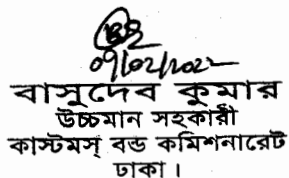 ০৭/০২/২০২২
বাসুদেব কুমার
উচ্চমান সহকারী
কাস্টমস্ বন্ড কমিশনারেট
ঢাকা।